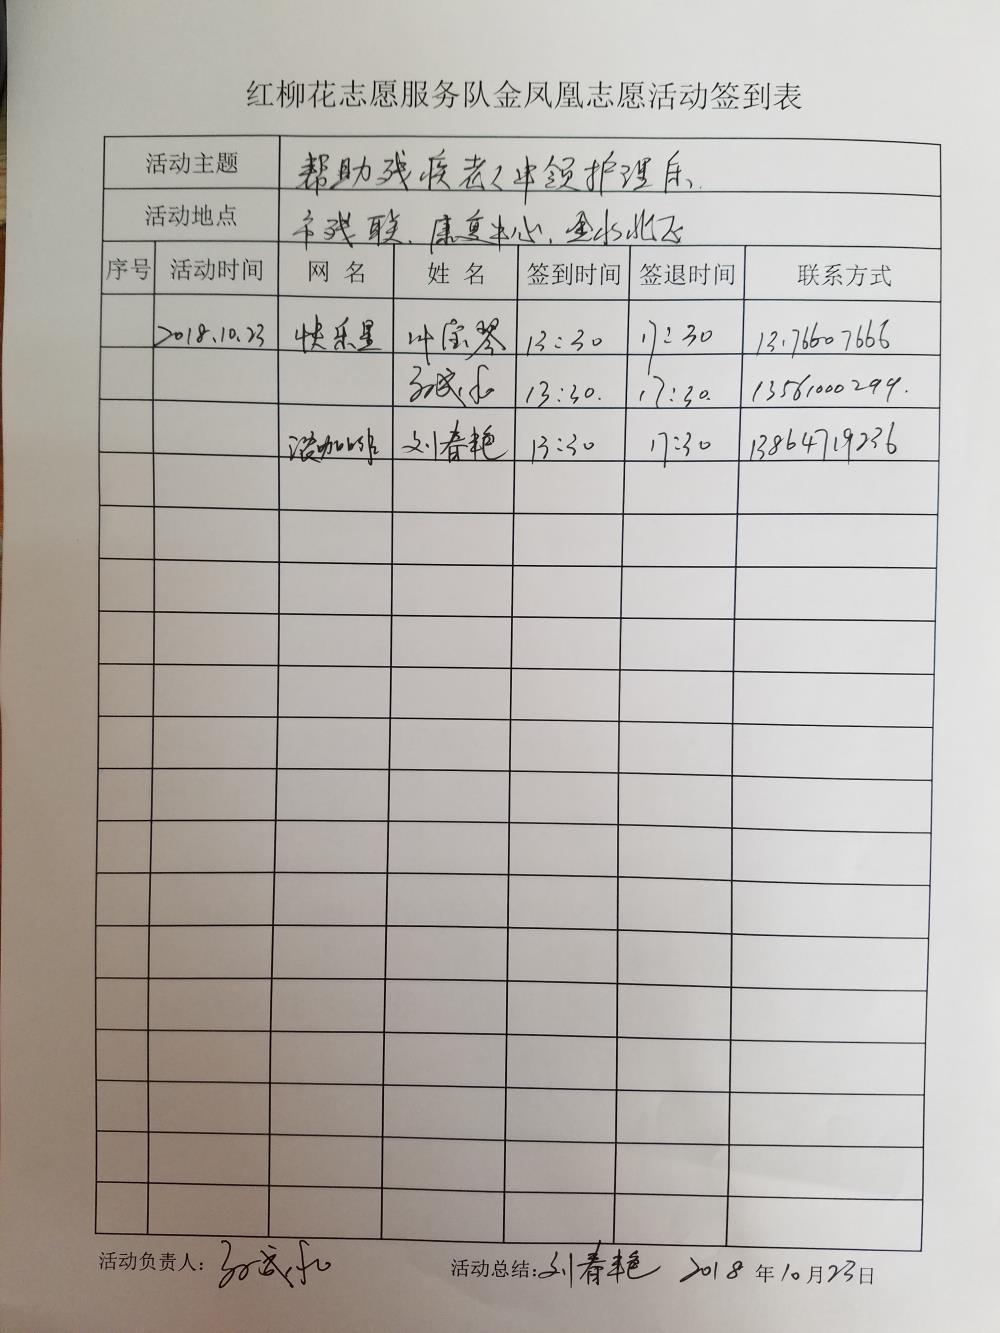 红柳花志愿服务队金凤凰志愿活动签到表
活动主题 帮助残疾老人申领护理床
活动地点 市残联、康复中心、金水北区
序号 活动时间 网 名 姓 名 签到时间 签退时间 联系方式
2018.10.23 快乐星 叶宝琴 13:30 17:30 13176607666
13:30. 17:30. 13561000299.
刘春艳 13:30 17:30 13864719236
活动负责人:
活动总结:刘春艳 2018 年10月23日